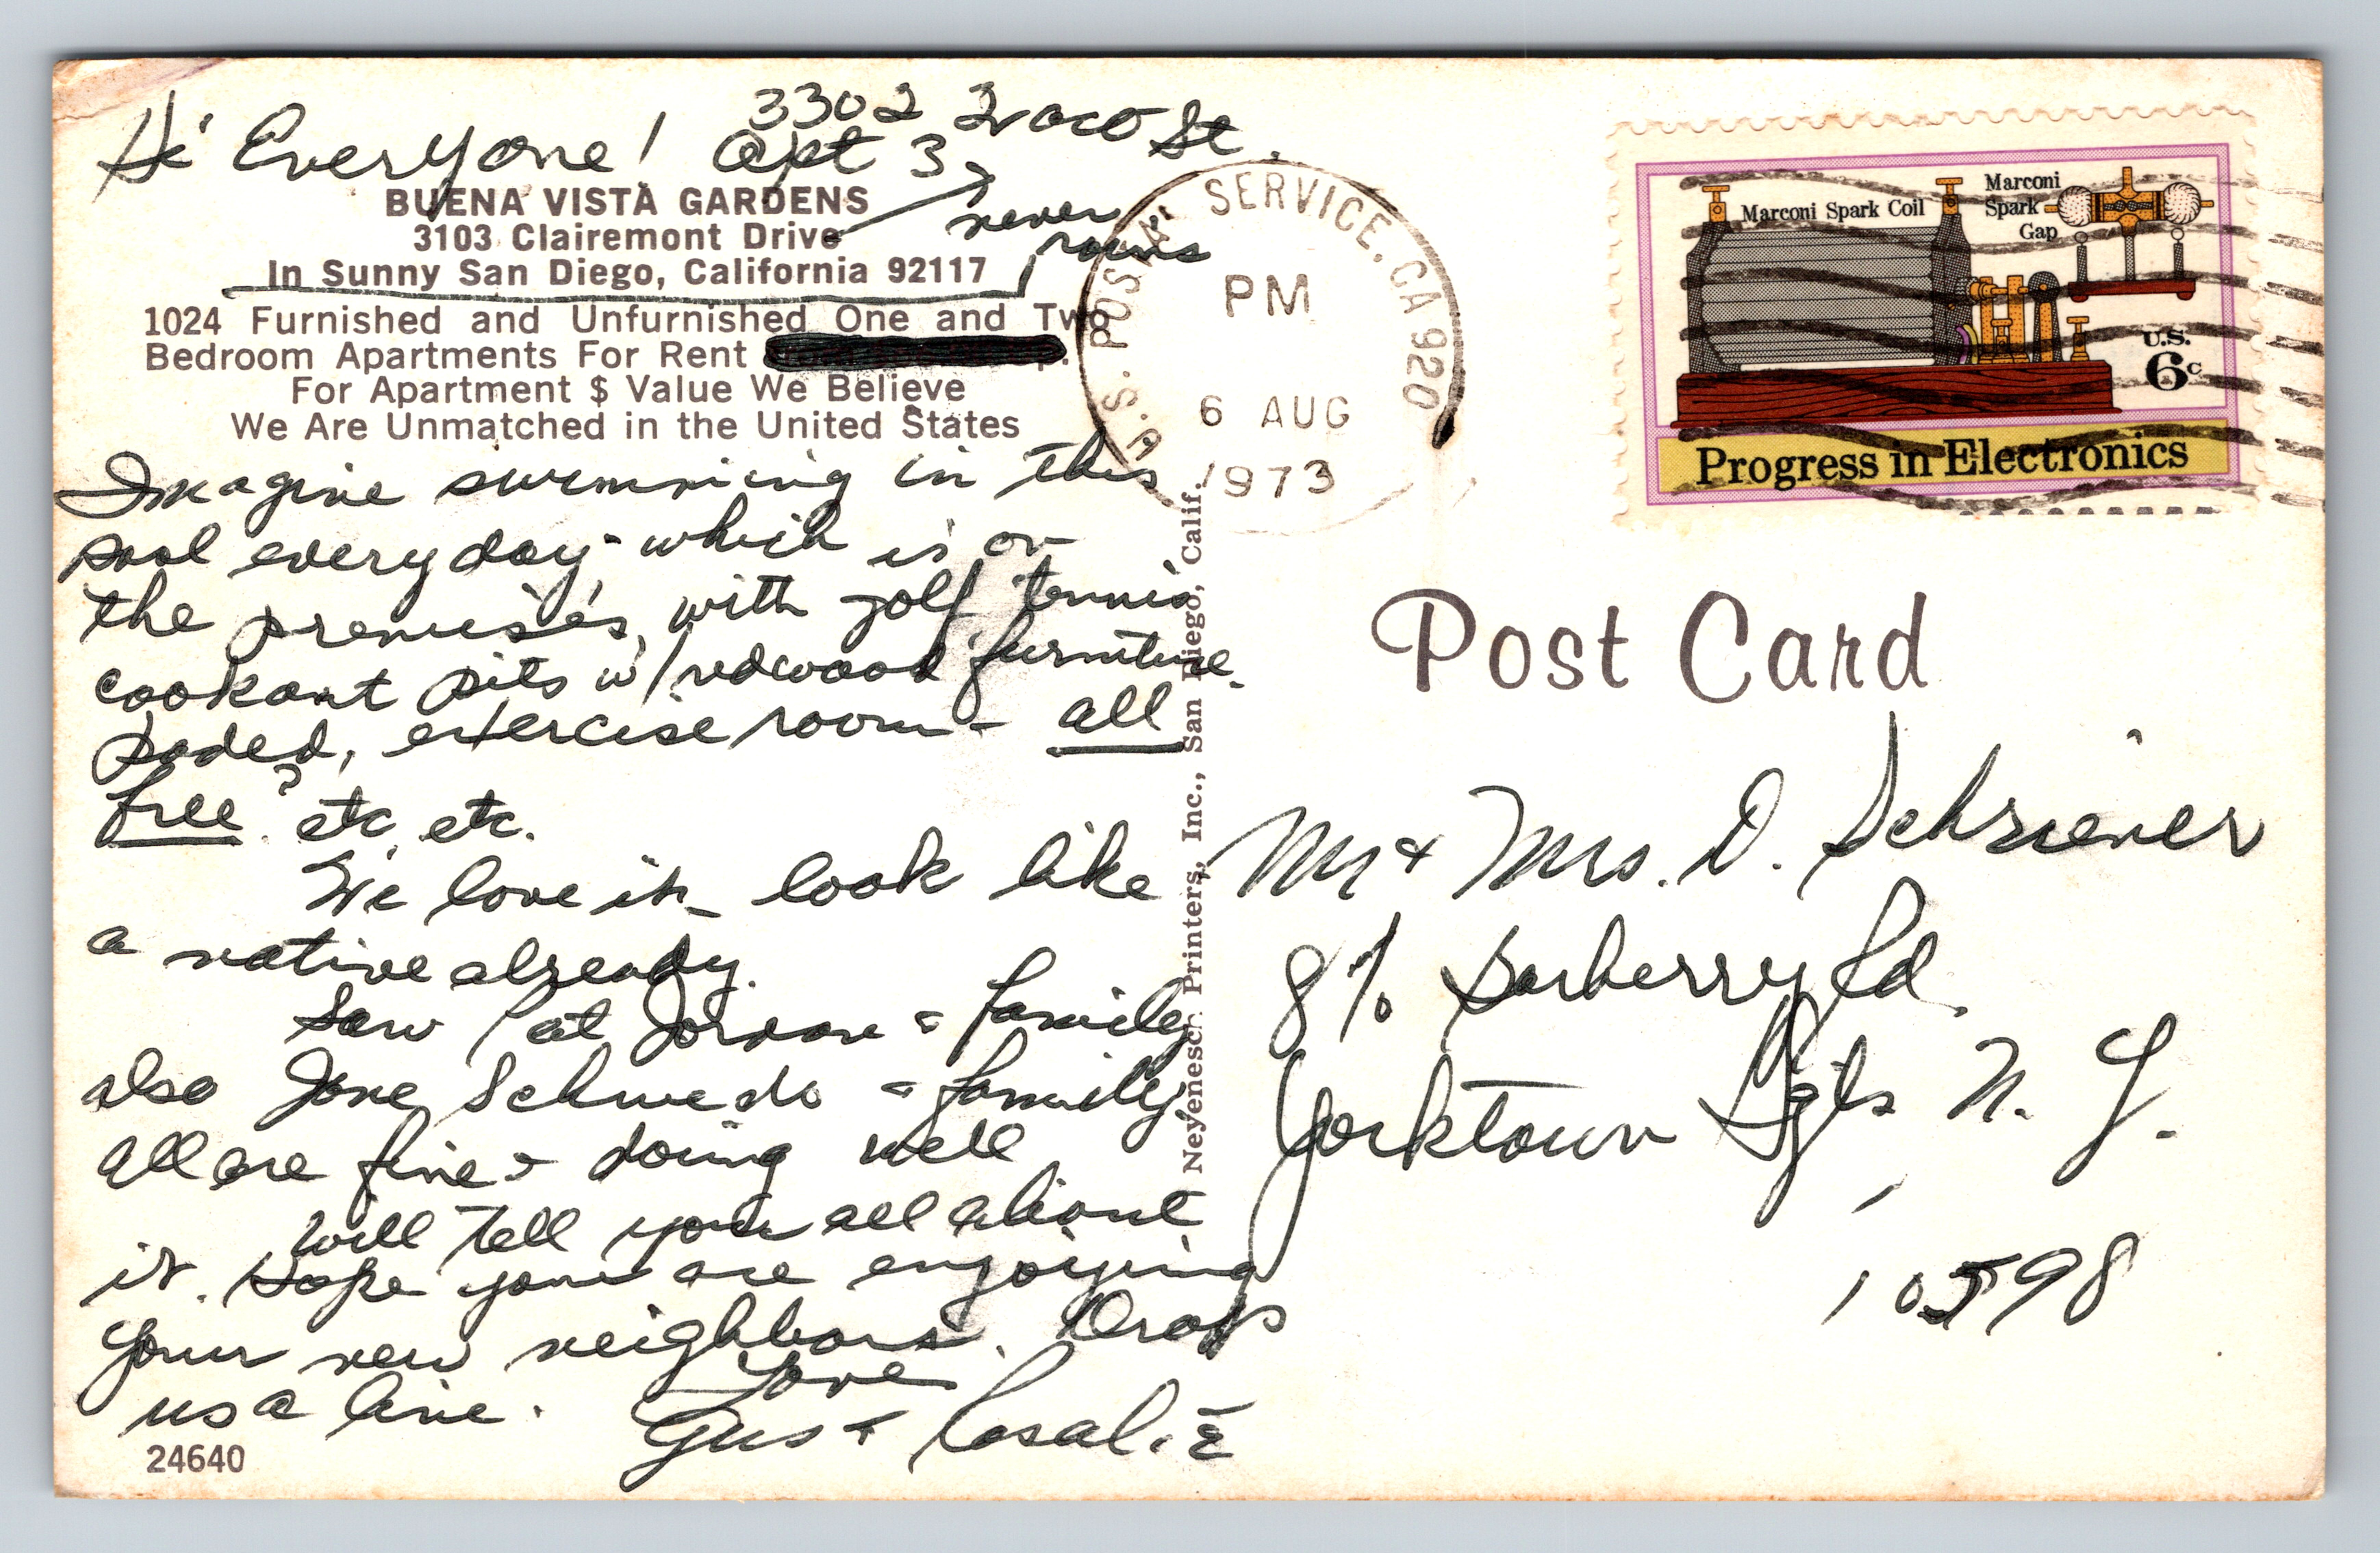 Hi Everyone!
3302 Waco St.
Apt 3
BUENA VISTA GARDENS
3103 Clairemont Drive
never
rains
In Sunny San Diego, California 92117
1024 Furnished and Unfurnished One and Two
Bedroom Apartments For Rent
For Apartment $ Value We Believe
We Are Unmatched in the United States
Imagine swimming in this
pool every day - which is on
the premises, with golf, tennis
cookout pits w/redwood furniture
exercise room - all
free? etc, etc.
We love it - look like
a native already.
Saw Pat Jordan & family
also Jane Schwedo & family,
all are fine & doing well
Will tell you all about
it. Hope you are enjoying
your new neighbors. Drop
us a line.
Love
Gus & Rosalie
24640
Neyenesch Printers, Inc., San Diego, Calif.
U.S. POSTAL SERVICE, CA 920
PM
6 AUG
1973
Marconi Spark Coil
Marconi
Spark
Gap
U.S.
6c
Progress in Electronics
Post Card
Mr & Mrs. D. Schriever
Barberry Rd.
Yorktown Hgts N. Y.
10598